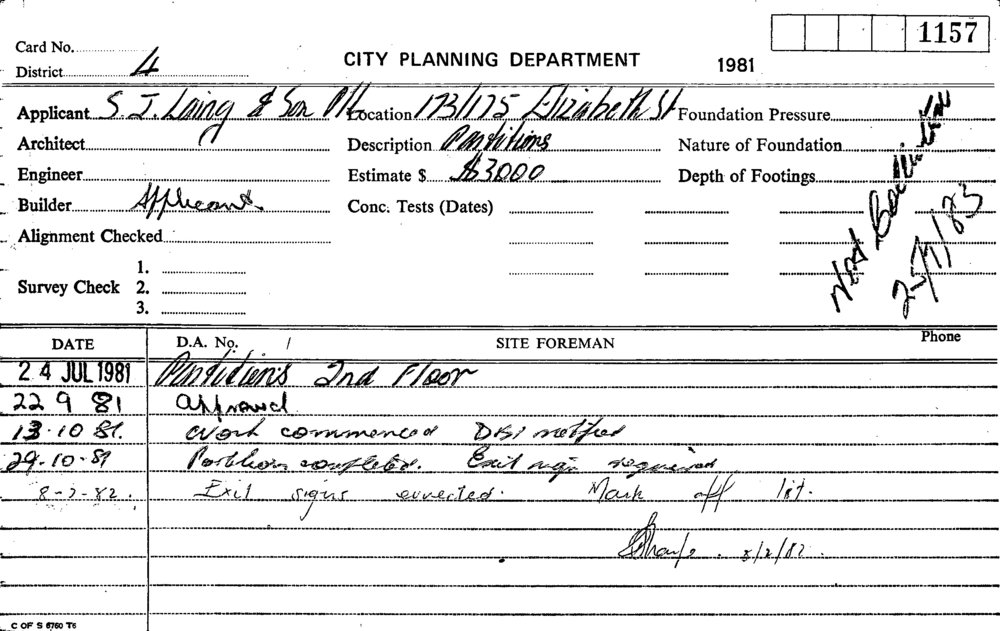 1157
Card No.
CITY PLANNING DEPARTMENT 1981
District 4
Applicant S. J. Laing & Son P/L Location 173/175 Elizabeth St Foundation Pressure
Architect Description Partitions Nature of Foundation
Engineer Estimate $ $3000 Depth of Footings
Builder Applicant. Conc. Tests (Dates)
Alignment Checked
Survey Check 1.
2.
3.
Not
25/7/83
DATE D.A. No. / SITE FOREMAN Phone
24 JUL 1981 Partitions 2nd Floor
22 9 81 approved
13.10 81. work commenced DBI notified
29.10.81 Partition completed. Exit sign required
8-2-82. Exit signs Mark off list.
8/2/82.
C OF S 6760 T6